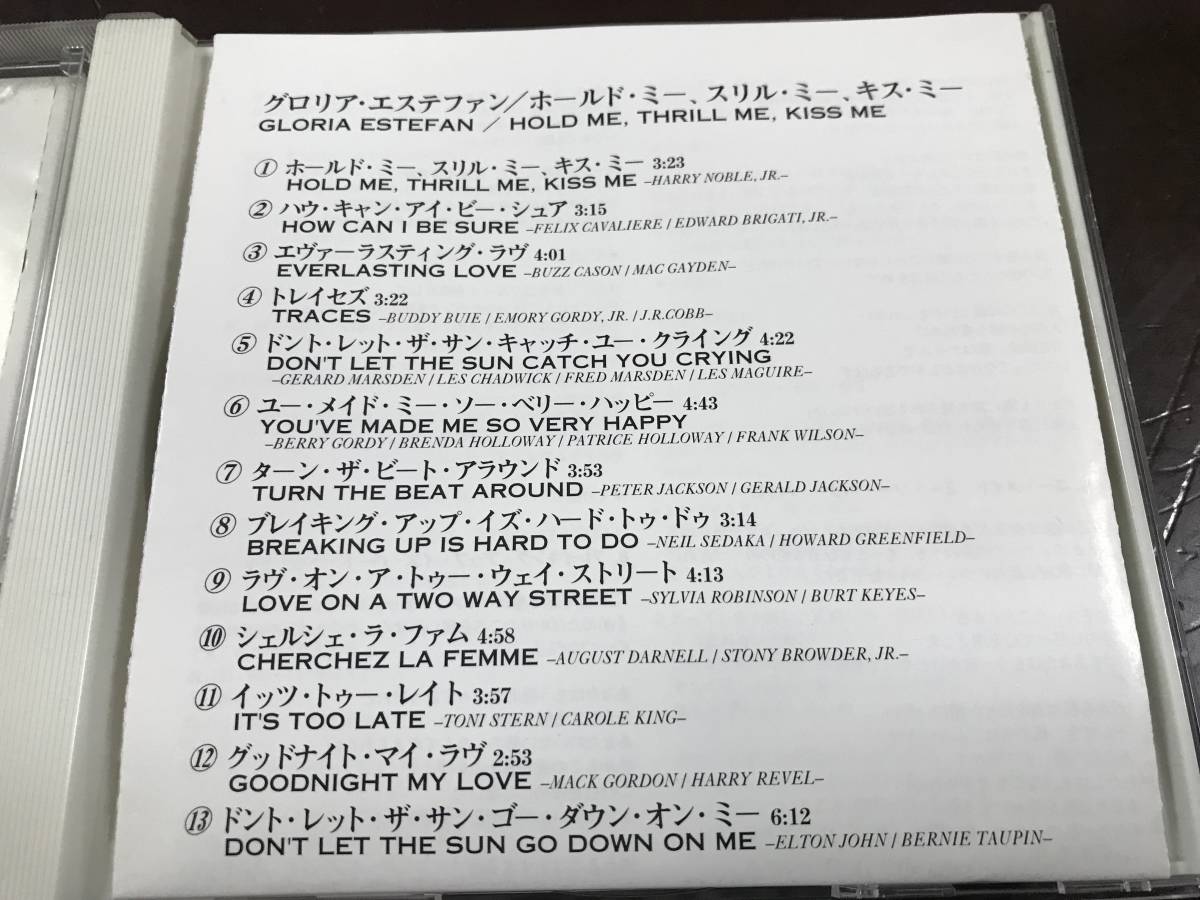 グロリア・エステファン／ホールド・ミー、スリル・ミー、キス・ミー
GLORIA ESTEFAN / HOLD ME, THRILL ME, KISS ME
① ホールド・ミー、スリル・ミー、キス・ミー 3:23
HOLD ME, THRILL ME, KISS ME –HARRY NOBLE, JR.–
② ハウ・キャン・アイ・ビー・シュア 3:15
HOW CAN I BE SURE –FELIX CAVALIERE / EDWARD BRIGATI, JR.–
③ エヴァーラスティング・ラヴ 4:01
EVERLASTING LOVE –BUZZ CASON / MAC GAYDEN–
④ トレイセズ 3:22
TRACES –BUDDY BUIE / EMORY GORDY, JR. / J.R.COBB–
⑤ ドント・レット・ザ・サン・キャッチ・ユー・クライング 4:22
DON'T LET THE SUN CATCH YOU CRYING
–GERARD MARSDEN / LES CHADWICK / FRED MARSDEN / LES MAGUIRE–
⑥ ユー・メイド・ミー・ソー・ベリー・ハッピー 4:43
YOU'VE MADE ME SO VERY HAPPY
–BERRY GORDY / BRENDA HOLLOWAY / PATRICE HOLLOWAY / FRANK WILSON–
⑦ ターン・ザ・ビート・アラウンド 3:53
TURN THE BEAT AROUND –PETER JACKSON / GERALD JACKSON–
⑧ ブレイキング・アップ・イズ・ハード・トゥ・ドゥ 3:14
BREAKING UP IS HARD TO DO –NEIL SEDAKA / HOWARD GREENFIELD–
⑨ ラヴ・オン・ア・トゥー・ウェイ・ストリート 4:13
LOVE ON A TWO WAY STREET –SYLVIA ROBINSON / BURT KEYES–
⑩ シェルシェ・ラ・ファム 4:58
CHERCHEZ LA FEMME –AUGUST DARNELL / STONY BROWDER, JR.–
⑪ イッツ・トゥー・レイト 3:57
IT'S TOO LATE –TONI STERN / CAROLE KING–
⑫ グッドナイト・マイ・ラヴ 2:53
GOODNIGHT MY LOVE –MACK GORDON / HARRY REVEL–
⑬ ドント・レット・ザ・サン・ゴー・ダウン・オン・ミー 6:12
DON'T LET THE SUN GO DOWN ON ME –ELTON JOHN / BERNIE TAUPIN–